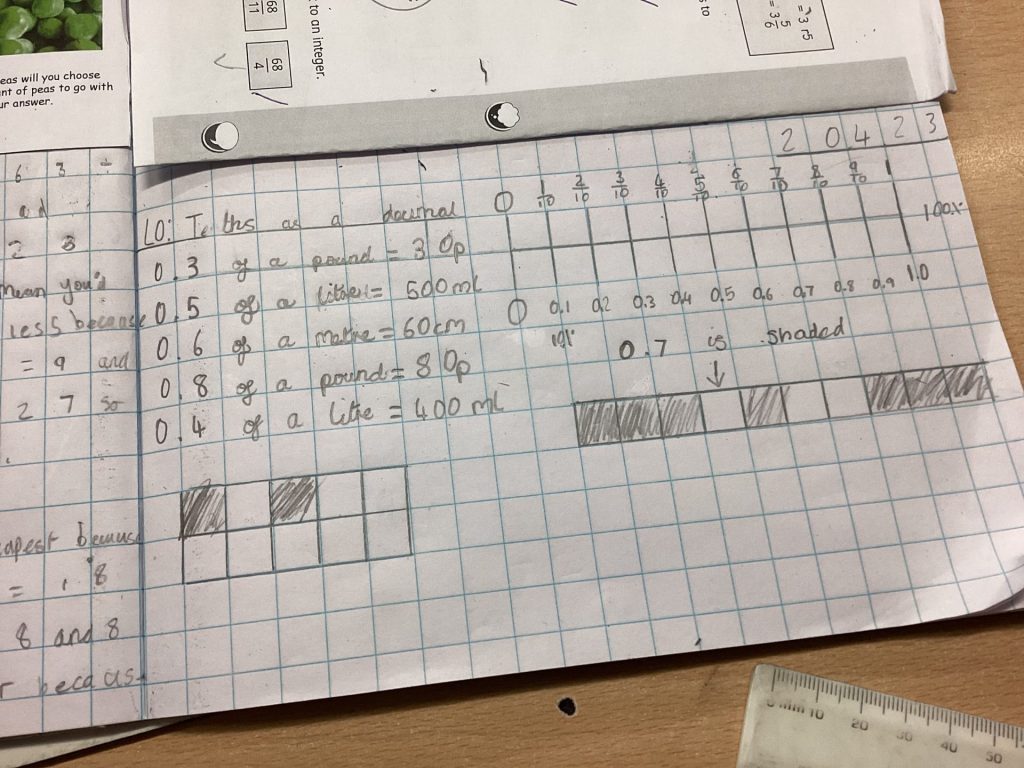 68
11
68
4
to an integer.
s to
eas will you choose
nt of peas to go with
ur answer.
6 3 ÷
ad
2 3
mean you'd
less because
= 9 and
2 7 so
apest because
= 1 8
8 and 8
r becaus
2 0 4 2 3
LO: Tenths as a decimal
0.3 of a pound = 30p
0.5 of a litre = 500ml
0.6 of a metre = 60cm
0.8 of a pound = 80p
0.4 of a litre = 400 ml
0 1/10 2/10 3/10 4/10 5/10 6/10 7/10 8/10 9/10 1
0 0.1 0.2 0.3 0.4 0.5 0.6 0.7 0.8 0.9 1.0
0.7 is shaded
mm 10 20 30 40 50